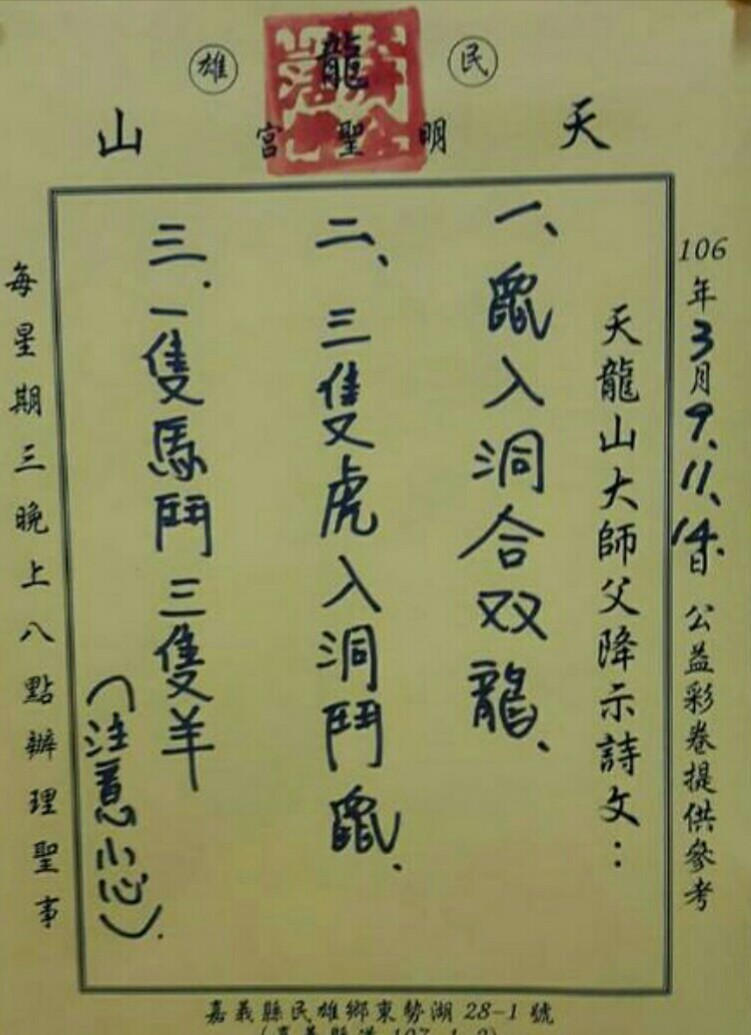 民雄
天龍山
明聖宮
106年3月9、11、14日 公益彩卷提供參考
天龍山大師父降示詩文：
一、鼠入洞合双龍、
二、三隻虎入洞鬥鼠.
三.一隻馬鬥三隻羊
(注意小心).
每星期三晚上八點辦理聖事
嘉義縣民雄鄉東勢湖28-1號